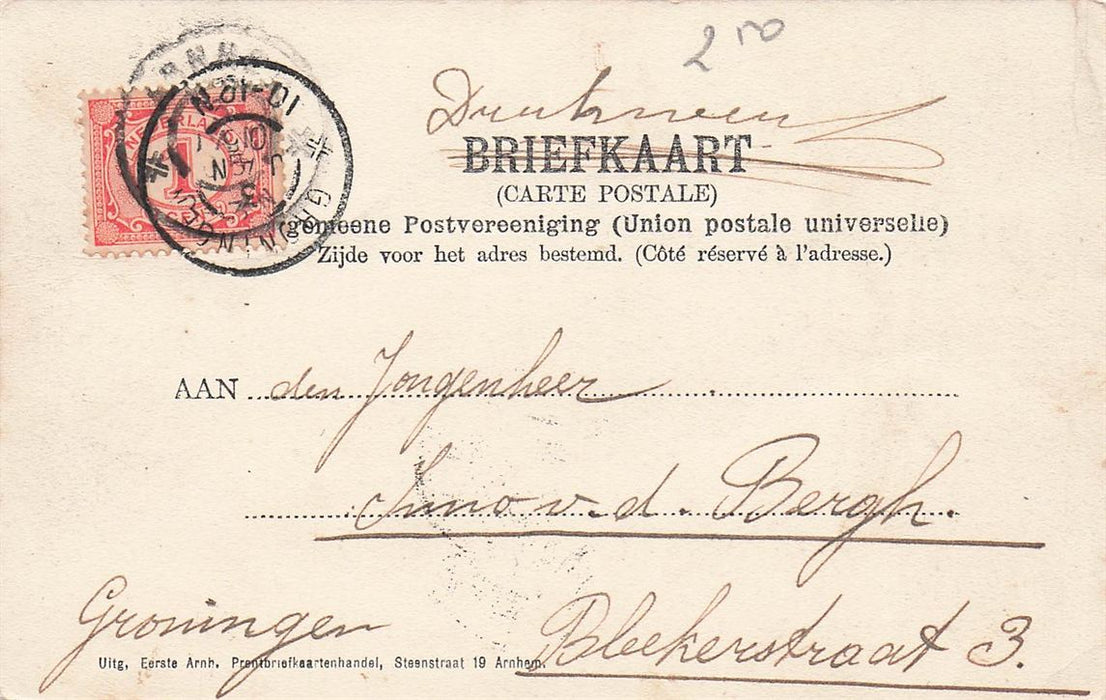 2 50
Drukwerk
BRIEFKAART
(CARTE POSTALE)
gemeene Postvereeniging (Union postale universelle)
Zijde voor het adres bestemd. (Côté réservé à l'adresse.)
NEDERLA
1
CENT
10-12N
GRONINGEN
AAN den Jongenheer
Immo v. d. Bergh.
Groningen Bleekerstraat 3.
Uitg, Eerste Arnh. Prentbriefkaartenhandel, Steenstraat 19 Arnhem.